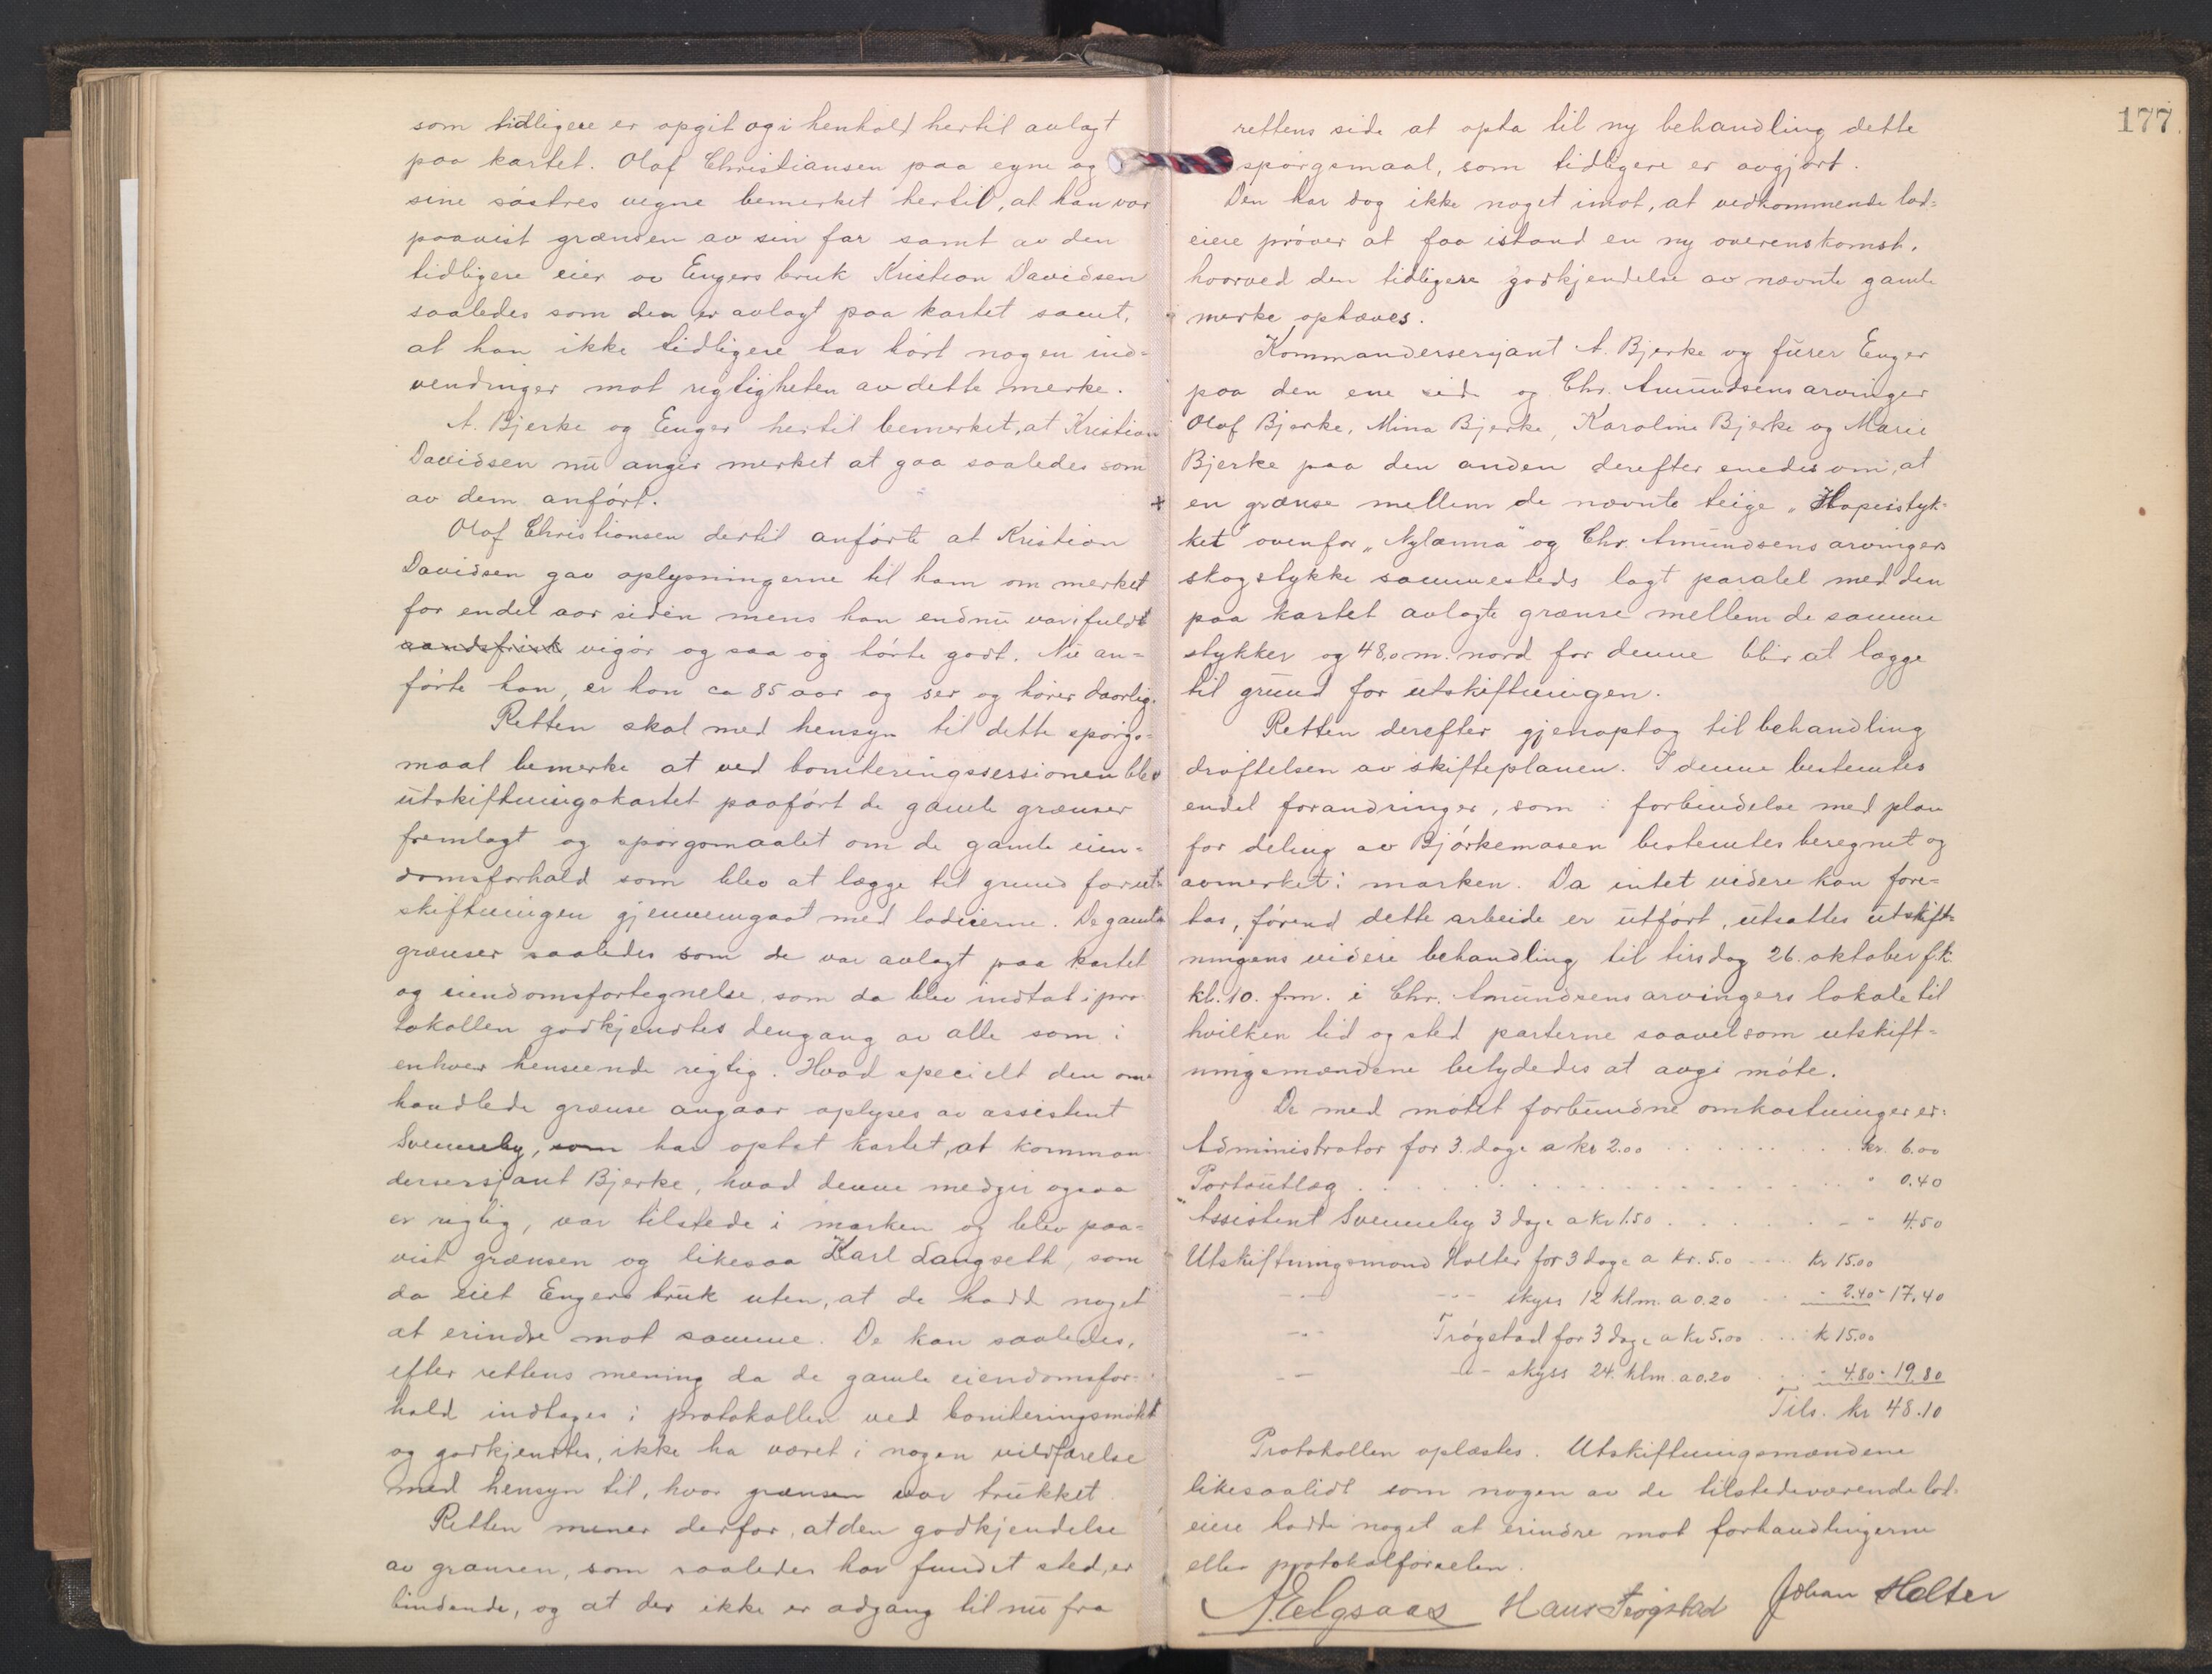 som tidligere er opgit og i henhold hertil avlagt
paa kartet. Olaf Christiansen paa egne og
sine søstres vegne bemerket hertil, at han var
paavist grænsen av sin far samt av den
tidligere eier av Engers bruk Kristian Davidsen
saaledes som den er avlagt paa kartet samt,
at han ikke tidligere har hørt nogen ind-
vendinger mot rigtigheten av dette merke.
A. Bjerke og Enger hertil bemerket, at Kristian
Davidsen nu angir merket at gaa saaledes som
av dem anført.
Olaf Christiansen dertil anførte at Kristian
Davidsen gav oplysningerne til ham om merket
for endel aar siden mens han endnu var i fuldt
aandsfrisk vigør og saa og hørte godt. Nu an-
førte han, er han ca 85 aar og ser og hører daarlig.
Retten skal med hensyn til dette spørgs-
maal bemerke at ved boniteringssessionen blev
utskiftningskartet paaført de gamle grænser
fremlagt og spørgsmaalet om de gamle eien-
domsforhold som blev at lægge til grund for ut-
skiftningen gjennemgaat med lodeierne. De gamle
grænser saaledes som de var avlagt paa kartet
og eiendomsfortegnelse, som da blev indtat i pro-
tokollen godkjendtes dengang av alle som i
enhver henseende rigtig. Hvad specielt den om-
handlede grænse angaar oplyses av assistent
Svenneby, som har optat kartet, at komman-
dersersjant Bjerke, hvad denne medgir ogsaa
er rigtig, var tilstede i marken og blev paa-
vist grænsen og likesaa Karl Langseth, som
da eiet Engers bruk uten, at de hadde noget
at erindre mot samme. De kan saaledes,
efter rettens mening da de gamle eiendomsfor-
hold indtages i protokollen ved boniteringsmøtet
og godkjendtes, ikke ha været i nogen vildfarelse
med hensyn til, hvor grænsen var trukket.
Retten mener derfor, at den godkjendelse
av grænsen, som saaledes har fundet sted, er
bindende, og at der ikke er adgang til nu fra
177.
rettens side at opta til ny behandling dette
spørgsmaal, som tidligere er avgjort.
Den har dog ikke noget imot, at vedkommende lod-
eiere prøver at faa istand en ny overenskomst,
hvorved den tidligere godkjendelse av nævnte gamle
merke ophæves.
Kommandersersjant A. Bjerke og furer Enger
paa den ene side og Chr. Amundsens arvinger
Olaf Bjerke, Mina Bjerke, Karoline Bjerke og Marie
Bjerke paa den anden derefter enedes om, at
+ en grænse mellem de nævnte teige „Hapisstyk-
ket ovenfor „Nylænna" og Chr. Amundsens arvingers
skogstykke sammesteds lagt paralel med den
paa kartet avlagte grænse mellem de samme
stykker og 48,0 m. nord for denne blir at lægge
til grund for utskiftningen.
Retten derefter gjenoptog til behandling
drøftelsen av skifteplanen. I denne bestemtes
endel forandringer, som i forbindelse med plan
for deling av Bjørkemasen bestemtes beregnet og
avmerket i marken. Da intet videre kan fore-
tas, førend dette arbeide er utført, utsattes utskift-
ningens videre behandling til tirsdag 26. oktober f.k.
kl. 10. f.m. i Chr. Amundsens arvingers lokale til
hvilken tid og sted parterne saavel som utskift-
ningsmændene betydedes at avgi møte.
De med møtet forbundne omkostninger er:
Administrator for 3 dage a kr 2.00 . . . . . . . . kr. 6.00
Portoutlæg . . . . . . . . . . . . " 0.40
Assistent Svenneby 3 dage a kr 1.50 . . . . . . . " 4.50
Utskiftningsmand Holter for 3 dage a kr. 5.0 . . . . kr 15.00
-"- -"- skyss 12 klm. a 0.20 . . . " 2.40 - 17.40
-"- Trøgstad for 3 dage a kr 5.00 . . . . k 15.00
-"- -"- skyss 24. klm. a 0.20 . . . " 4.80 - 19.80
Tils. kr 48.10
Protokollen oplæstes. Utskiftningsmændene
likesaalidt som nogen av de tilstedeværende lod-
eiere hadde noget at erindre mot forhandlingerne
eller protokolførselen.
A. Elgsaas Hans Trøgstad Johan Holter